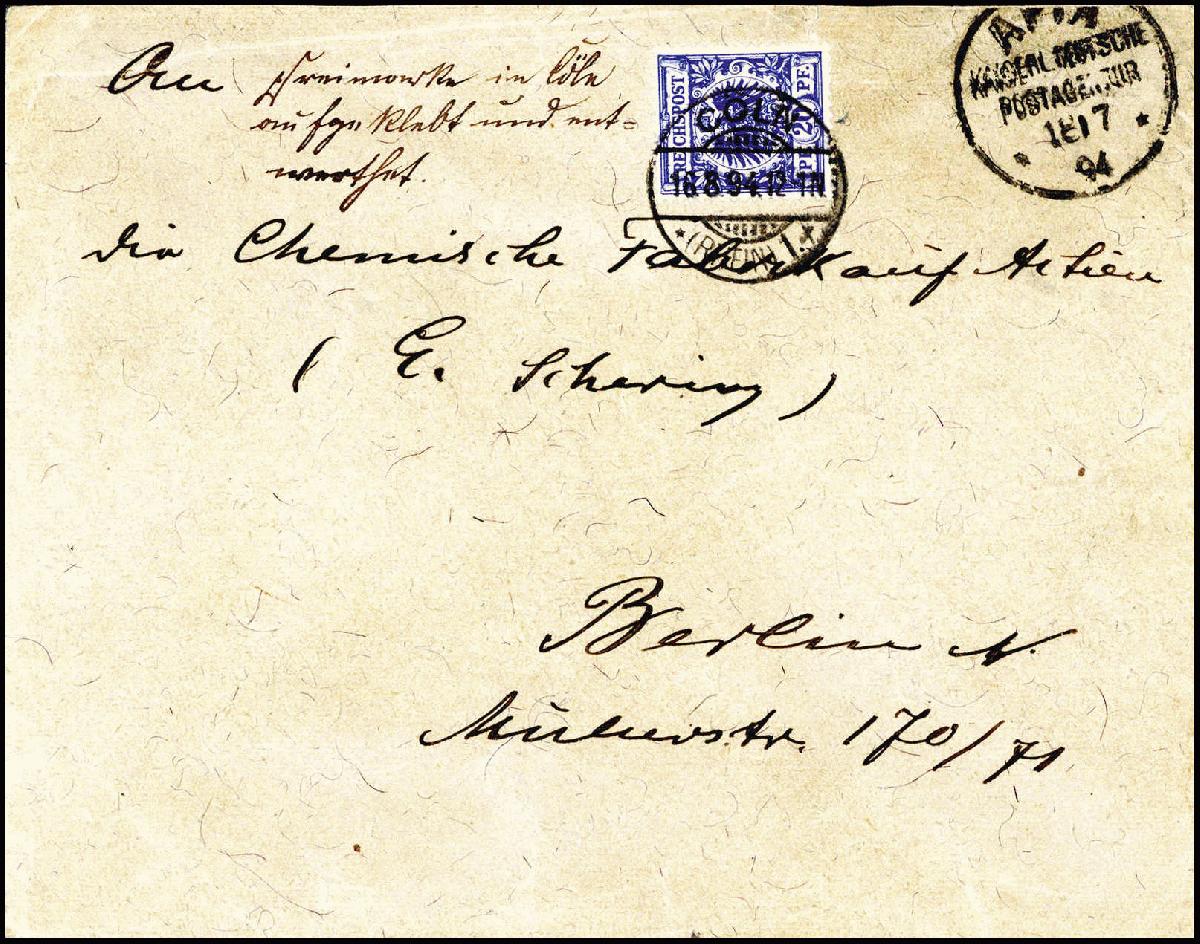 An
Freimarke in Cöln
aufgeklebt und ent=
werthet.
REICHSPOST
20
CÖLN
16.8.94.12-1N
* (RHEIN) 1. *
APIA
KAISERL. DEUTSCHE
POSTAGENTUR
18 7
94
die Chemische Fabrik auf Actien
( E. Schering )
Berlin N.
Müllerstr. 170/71